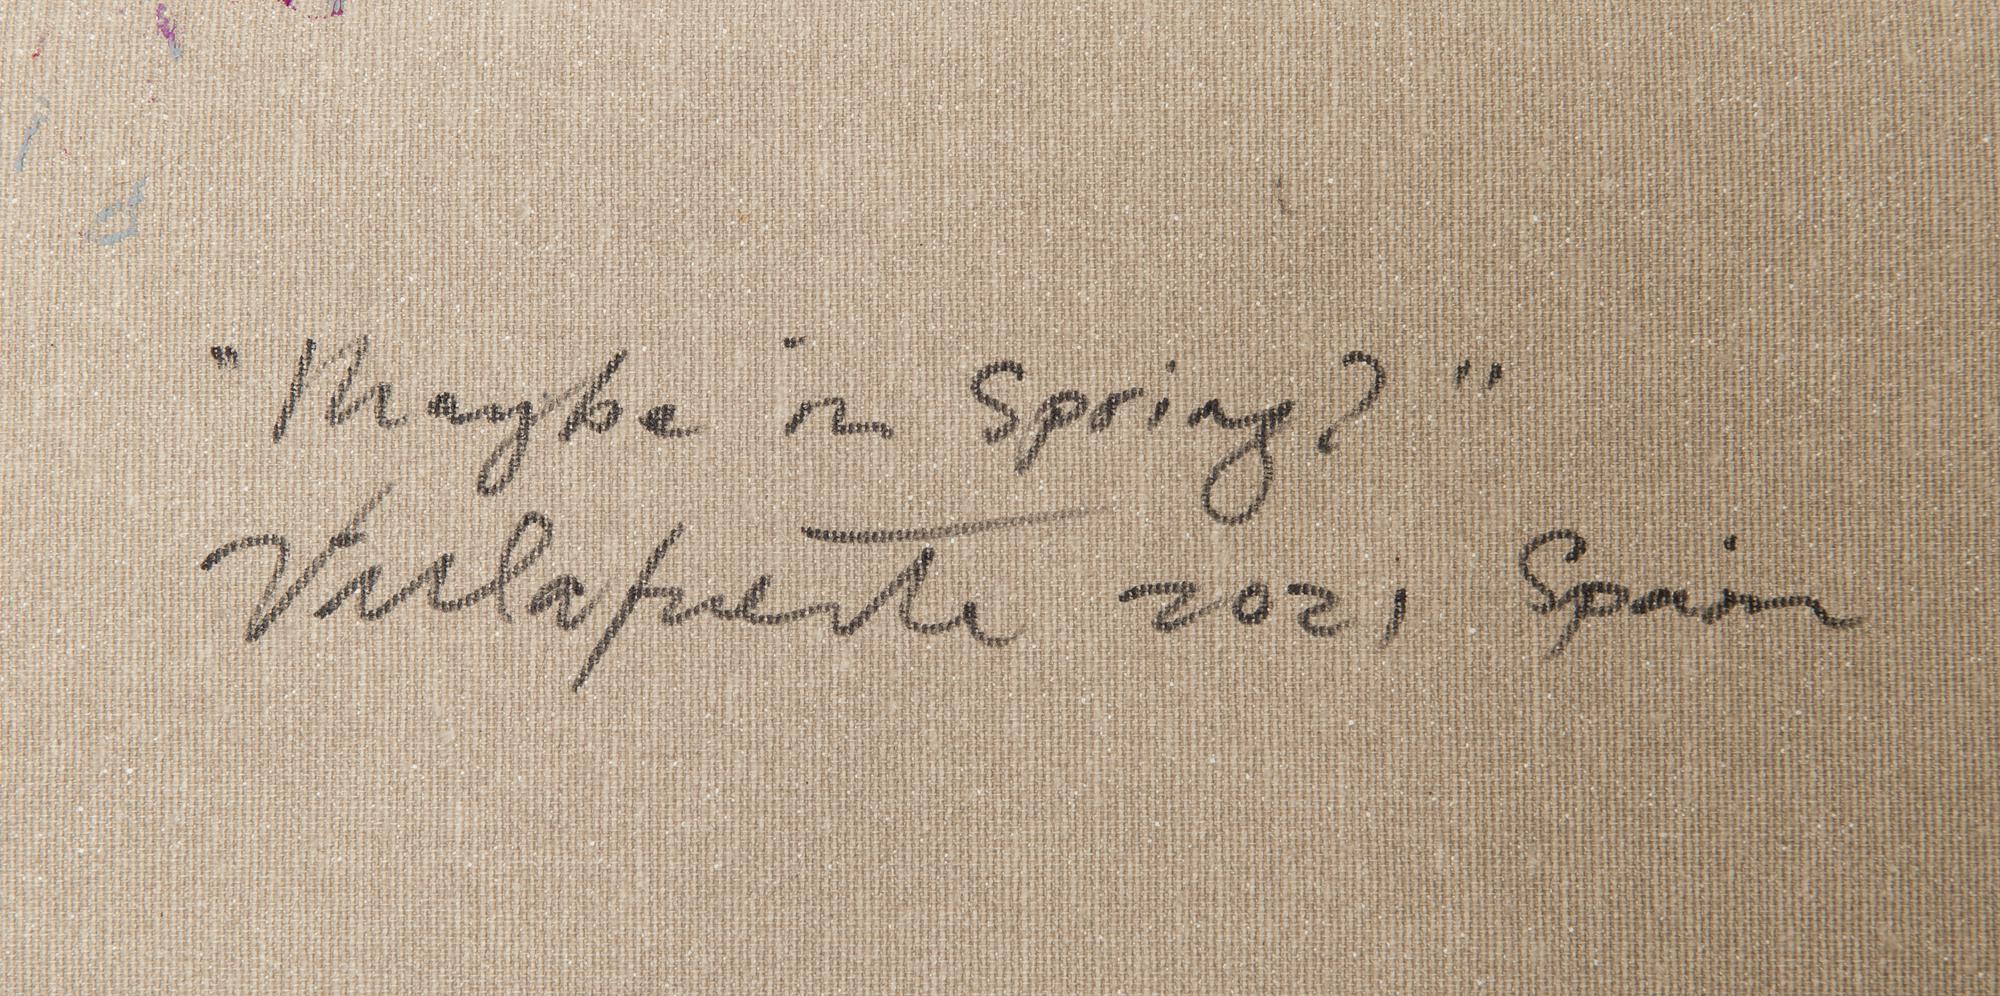 "Maybe in Spring?"
Villafuerte 2021 Spain